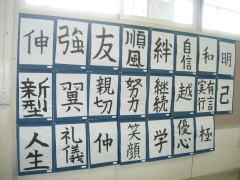 伸 強 友 順風 絆 自信 和 明
新型 翼 親切 努力 継続 越 有言実行 己
人生 礼儀 仲 笑顔 学 優心 極